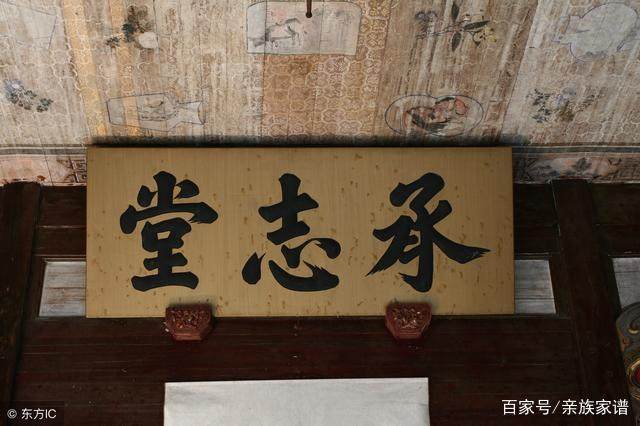 承志堂
© 东方IC
百家号/亲族家谱